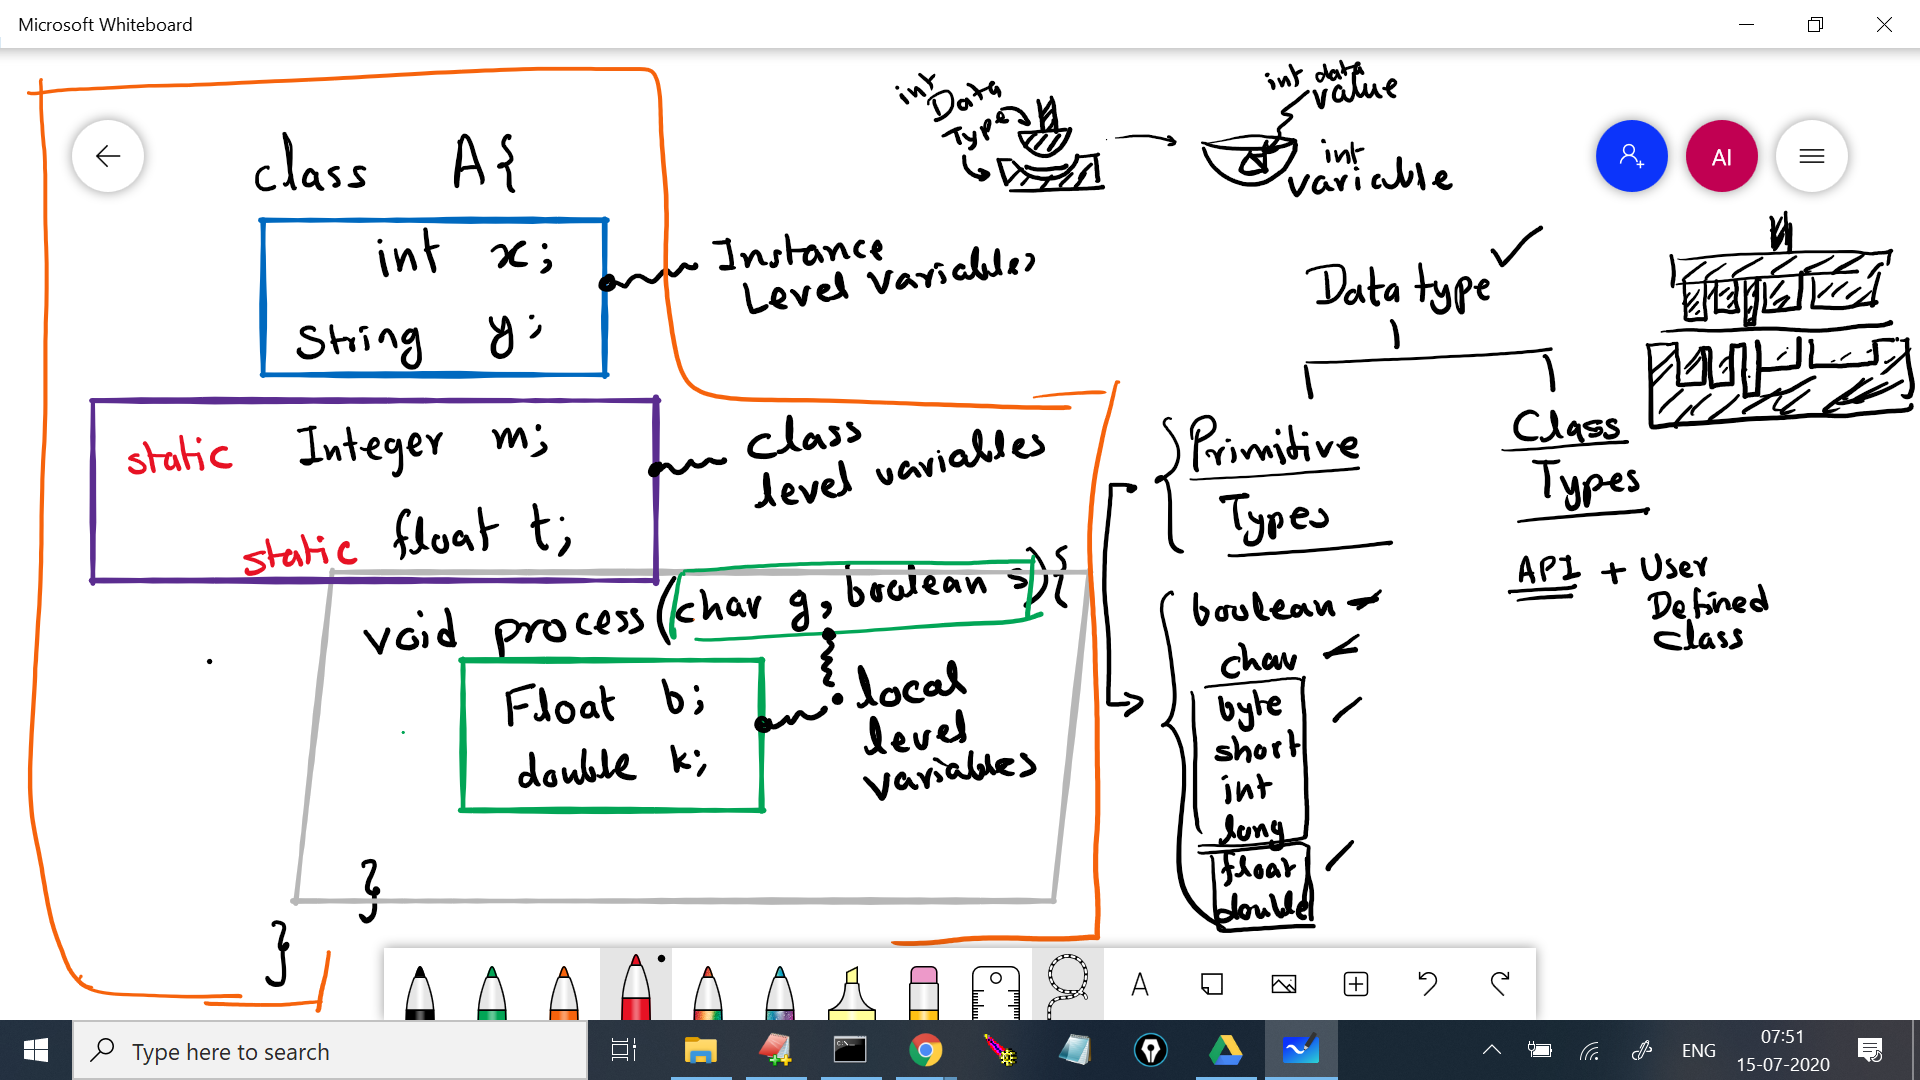 Microsoft Whiteboard
class A{
int x;
String y;
Instance
Level Variables
static Integer m;
static float t;
Class
level variables
void process(char g, boolean s){
Float b;
double k;
local
level
variables
}
}
int
Data
Type
int data
value
int
variable
AI
Data type
Primitive
Types
boolean
char
byte
short
int
long
float
double
Class
Types
API + User
Defined
Class
A
Type here to search
ENG
07:51
15-07-2020